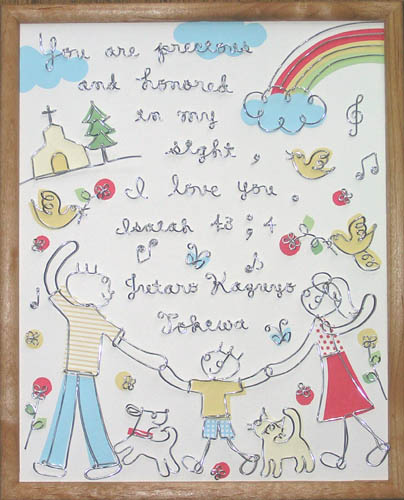 You are precious
and honored
in my
sight,
I love you.
Isaiah 43:4
Jutaro Kazuyo
Tokewa